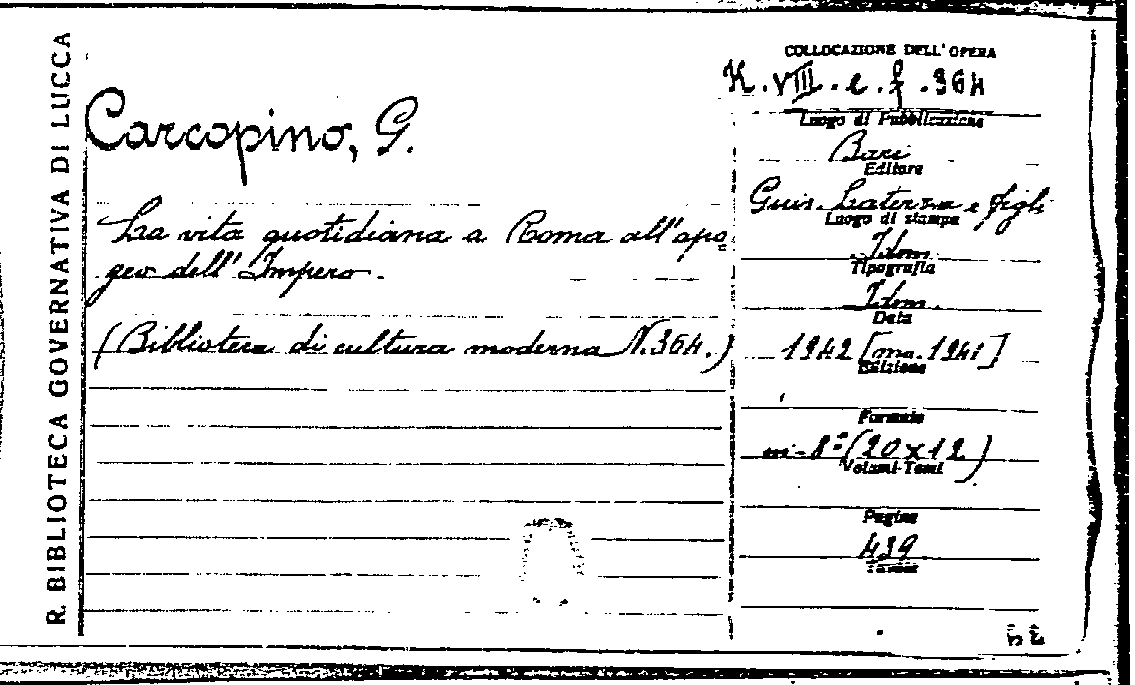 R. BIBLIOTECA GOVERNATIVA DI LUCCA
Carcopino, G.
La vita quotidiana a Roma all'apo
geo dell'Impero.
(Biblioteca di cultura moderna N. 364.)
COLLOCAZIONE DELL'OPERA
K. VIII. e. f. 364
Luogo di Pubblicazione
Bari
Editore
Gius. Laterza e figli
Luogo di stampa
Idem
Tipografia
Idem.
Data
1942 [ma. 1941]
Edizione
Formato
in-8º (20 x 12)
Volumi-Tomi
Pagine
439
Tavole